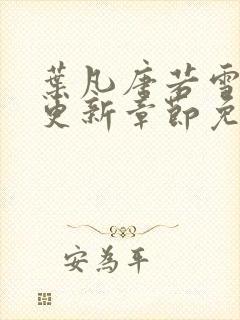 葉凡唐若雪
更新章節免
安為平